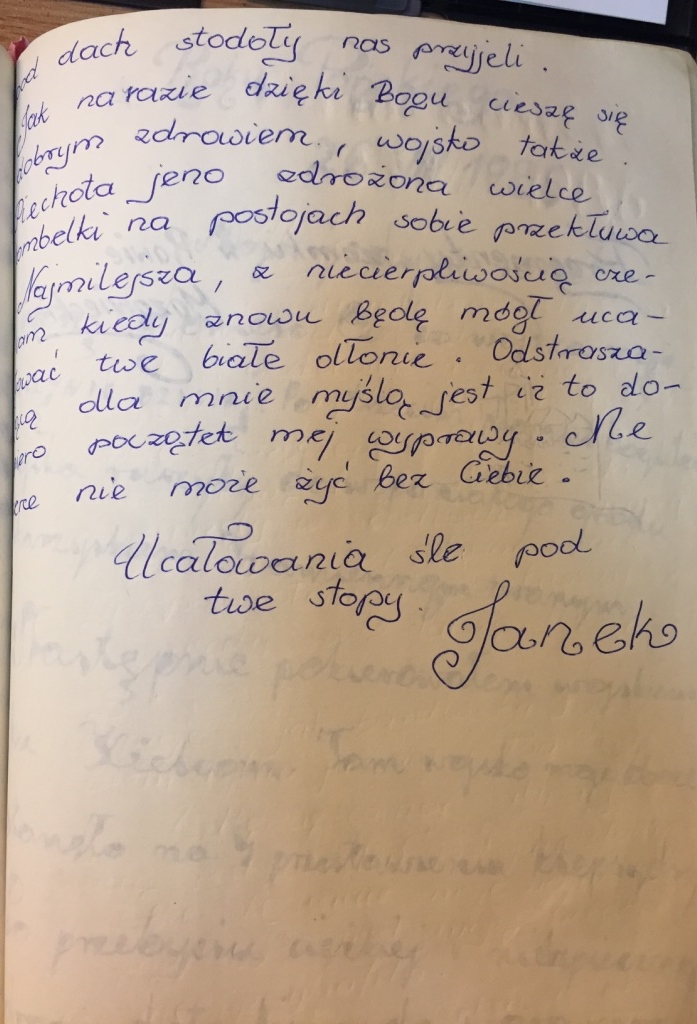 pod dach stodoły nas przyjeli.
Jak narazie dzięki Bogu cieszę się
dobrym zdrowiem, wojsko także.
Piechota jeno zdrożona wielce
ombelki na postojach sobie przekłuwa
Najmilejsza, z niecierpliwością cze-
am kiedy znowu będę mógł uca-
ować twe białe dłonie. Odstrasza-
cą dla mnie myślą jest iż to do-
iero początek mej wyprawy. Me
erce nie może żyć bez Ciebie.
Ucałowania śle pod
twe stopy.
Janek